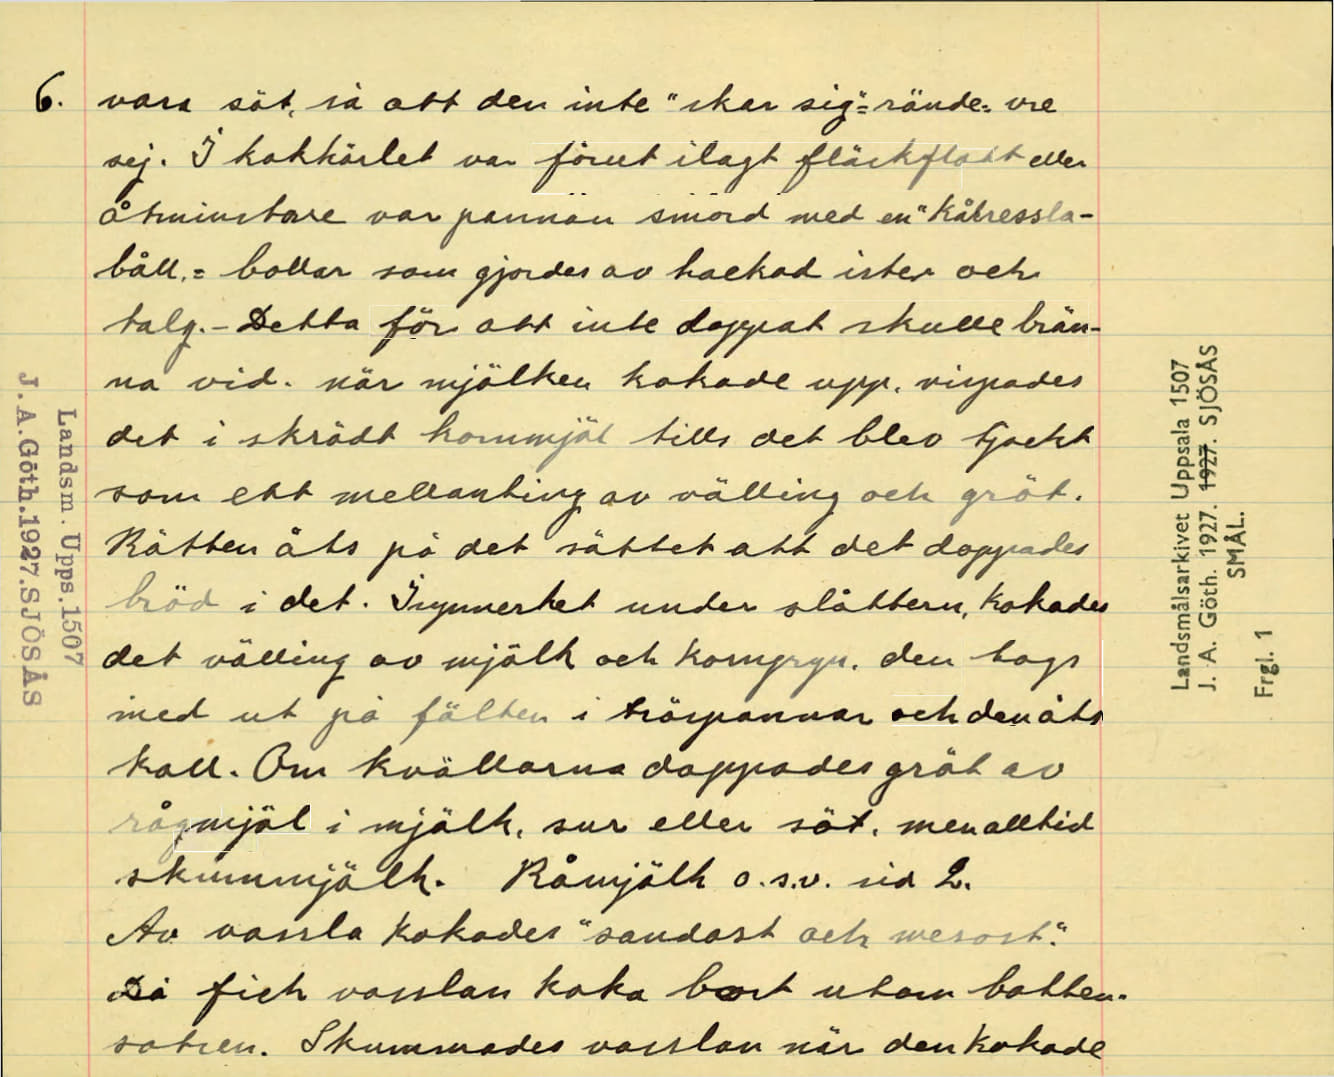 6. vara söt, så att den inte "skar sig"= rände= vre
sej. I kokkärlet var förut ilagt fläskflott eller
åtminstone var pannan smord med en "kåtressla-
båll,= bollar som gjordes av hackad ister och
talg.- Detta för att inte doppat skulle brän-
na vid. när mjölken kokade upp, vispades
det i skrädt kornmjöl tills det blev tjockt
som ett mellanting av välling och gröt.
Rätten åts på det sättet att det doppades
bröd i det. Isynnerhet under slåttern, kokades
det välling av mjölk och korngryn, den togs
med ut på fälten i träspannar och den åts
kall. Om kvällarna doppades gröt av
rågmjöl i mjölk, sur eller söt, men alltid
skummjölk. Råmjölk o.s.v. sid 2.
Av vassla kokades "sandost och mesost".
Då fick vasslan koka bort utom botten-
satsen. Skummades vasslan när den kokade
Landsm. Upps. 1507
J. A. Göth. 1927. SJÖSÅS
Landsmålsarkivet Uppsala 1507
J. A. Göth. 1927. 1927. SJÖSÅS
SMÅL.
Frgl. 1